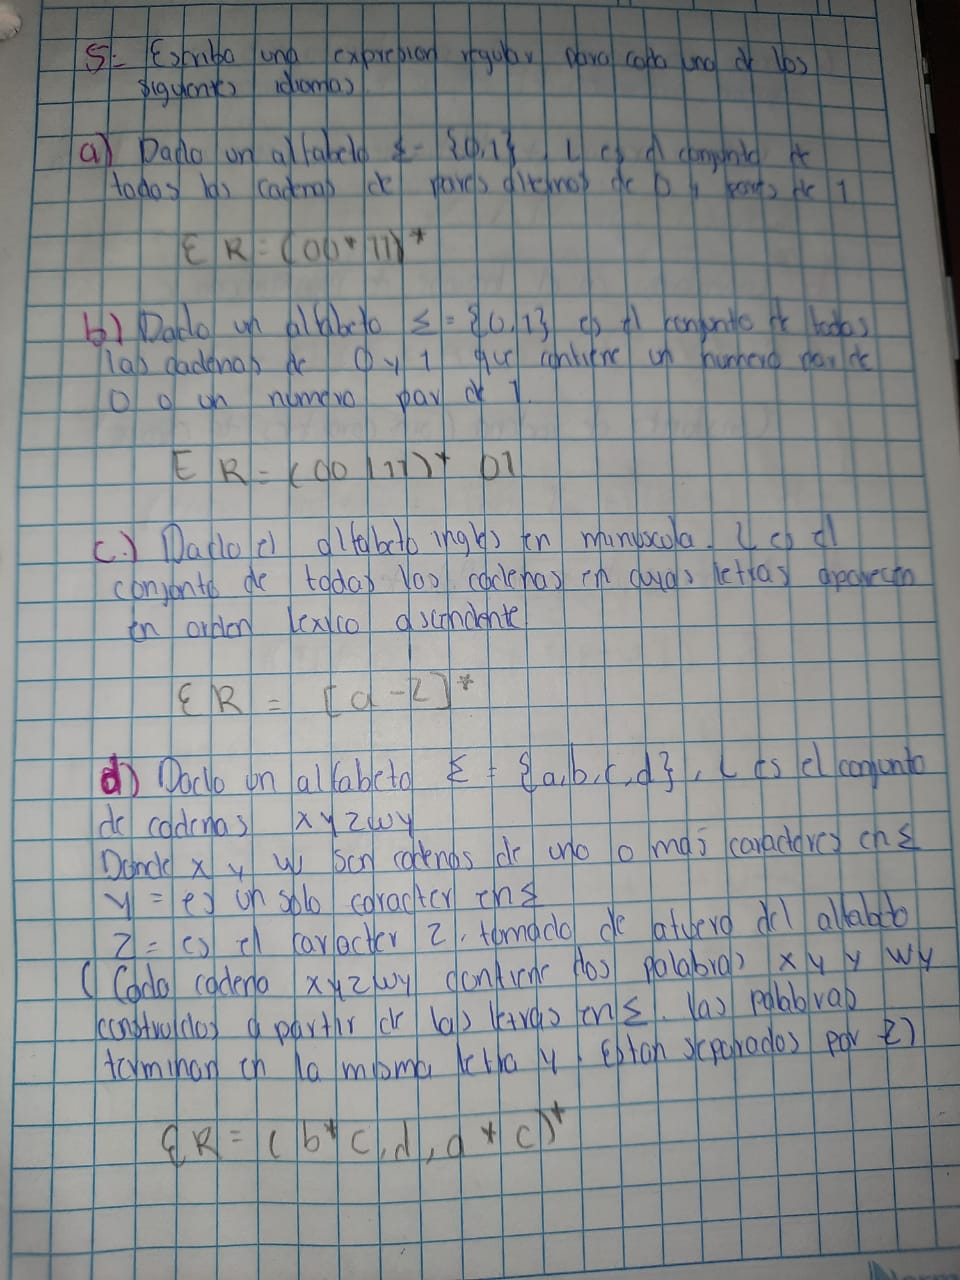 5= Escriba una expresion regular para cada uno de los
siguientes idiomas
a) Dado un alfabeto Σ= {0,1} L es el conjunto de
todas las cadenas de pares alternos de 0 y pares de 1
ER = (00*11)*
b) Dado un alfabeto Σ = {0,1} es el conjunto de todas
las cadenas de 0 y 1 que contiene un numero par de
0 o un numero par de 1.
ER = (00|11)* 01
c.) Dado el alfabeto ingles en minuscula. L es el
conjunto de todas las cadenas en cuyas letras aparecen
en orden lexico ascendente
ER = [a-z]*
d) Dado un alfabeto Σ = {a,b,c,d}, L es el conjunto
de cadenas xyzwy
Donde x y w son cadenas de uno o mas caracteres en Σ
y = es un solo caracter en Σ
z = es el caracter z, tomado de afuera del alfabeto
(Cada cadena xyzwy contiene dos palabras xy y wy
construidas a partir de las letras en Σ. las palabras
terminan en la misma letra y. Estan separados por z)
ER = (b*c,d,a*c)*